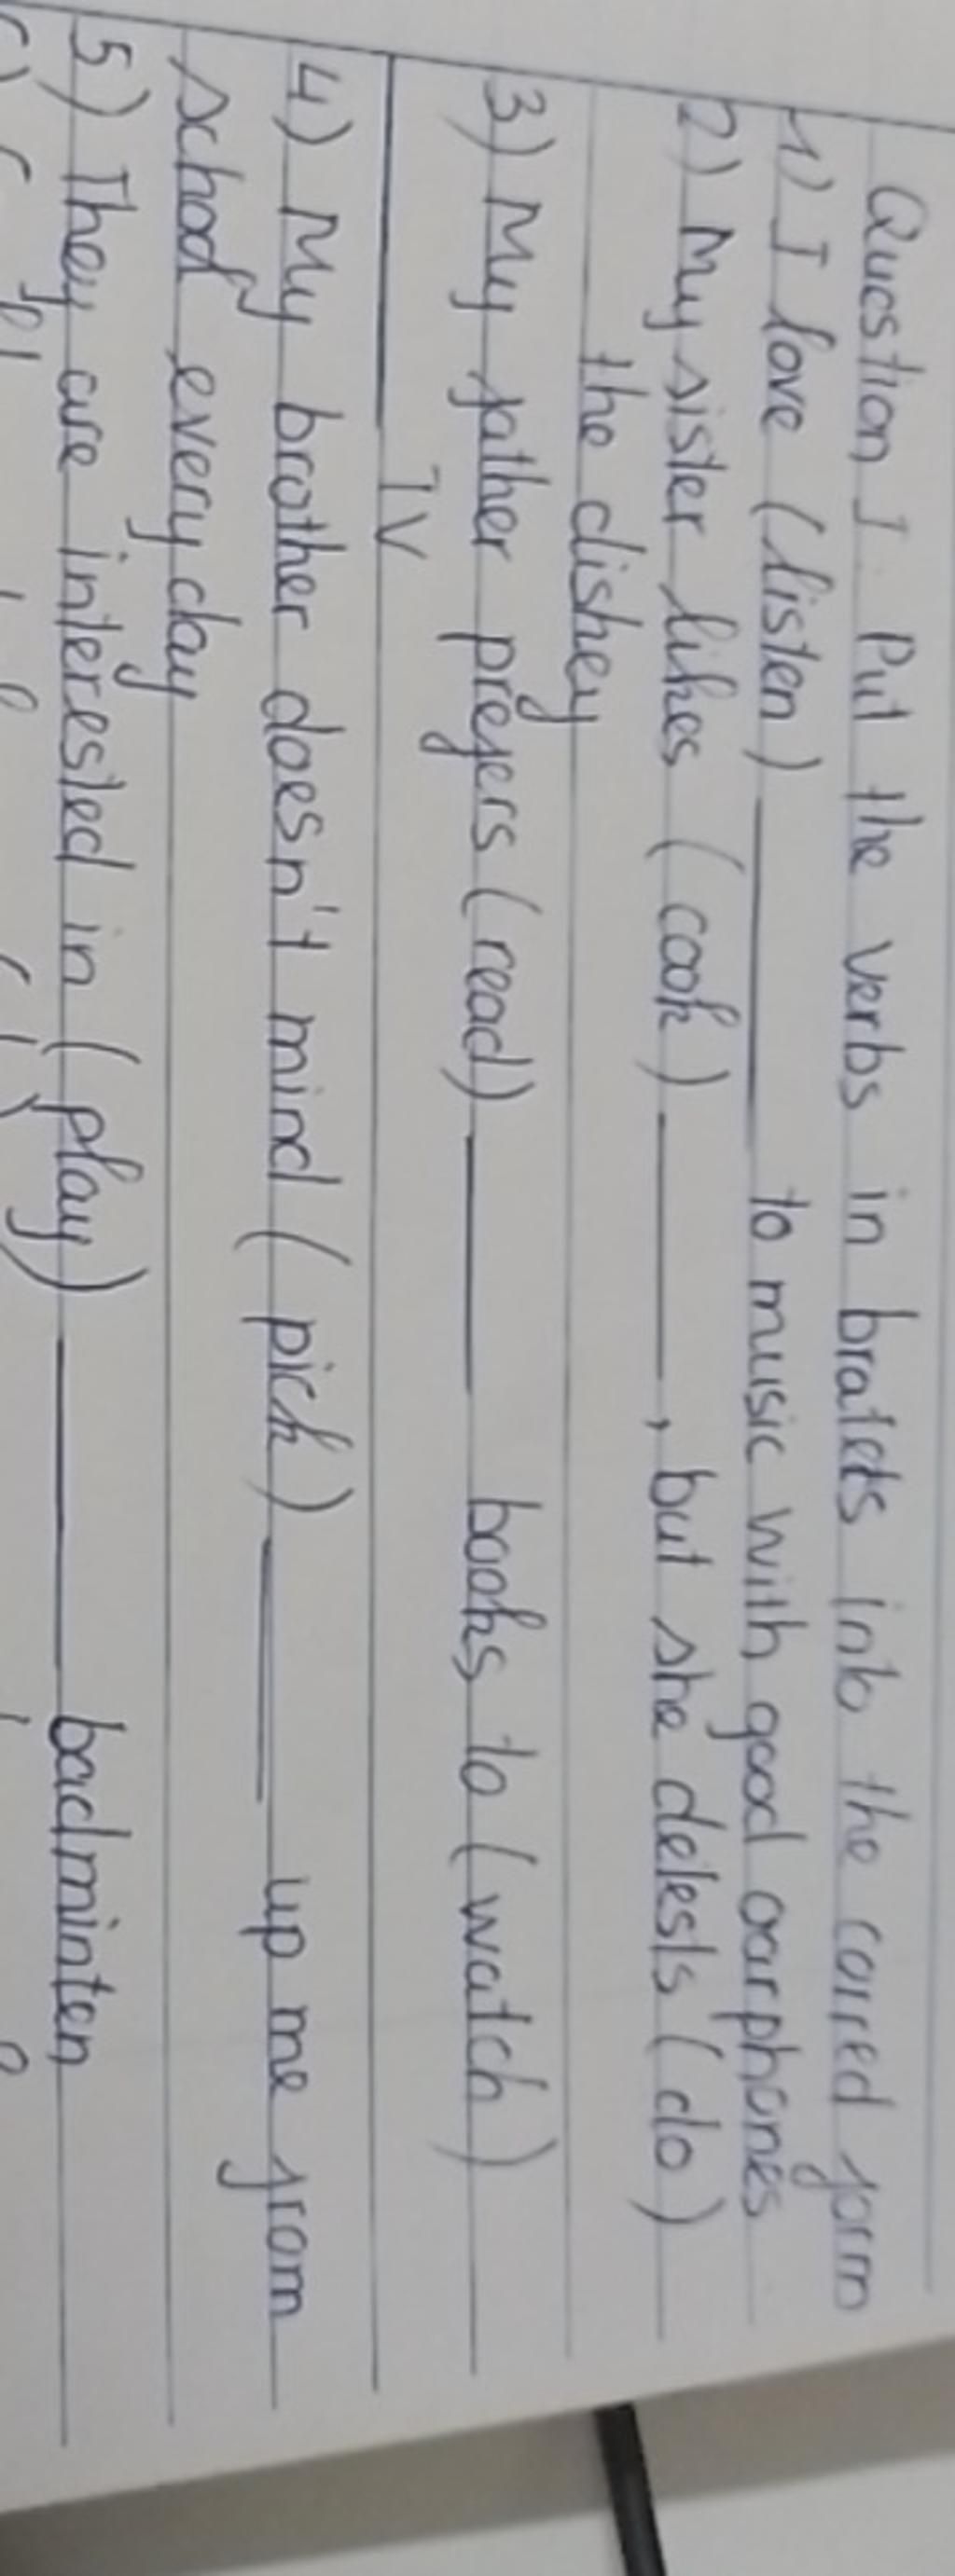 Question I Put the verbs in bratets into the corred form
1) I love (listen) ______ to music with good oarphones
2) My sister likes (cook) ______, but she detests (do)
the dishey
3) My father prefers (read) ______ books to (watch)
______ TV
4) My brother doesn't mind (pick) ______ up me from
school every day
5) They are interested in (play) ______ badminten